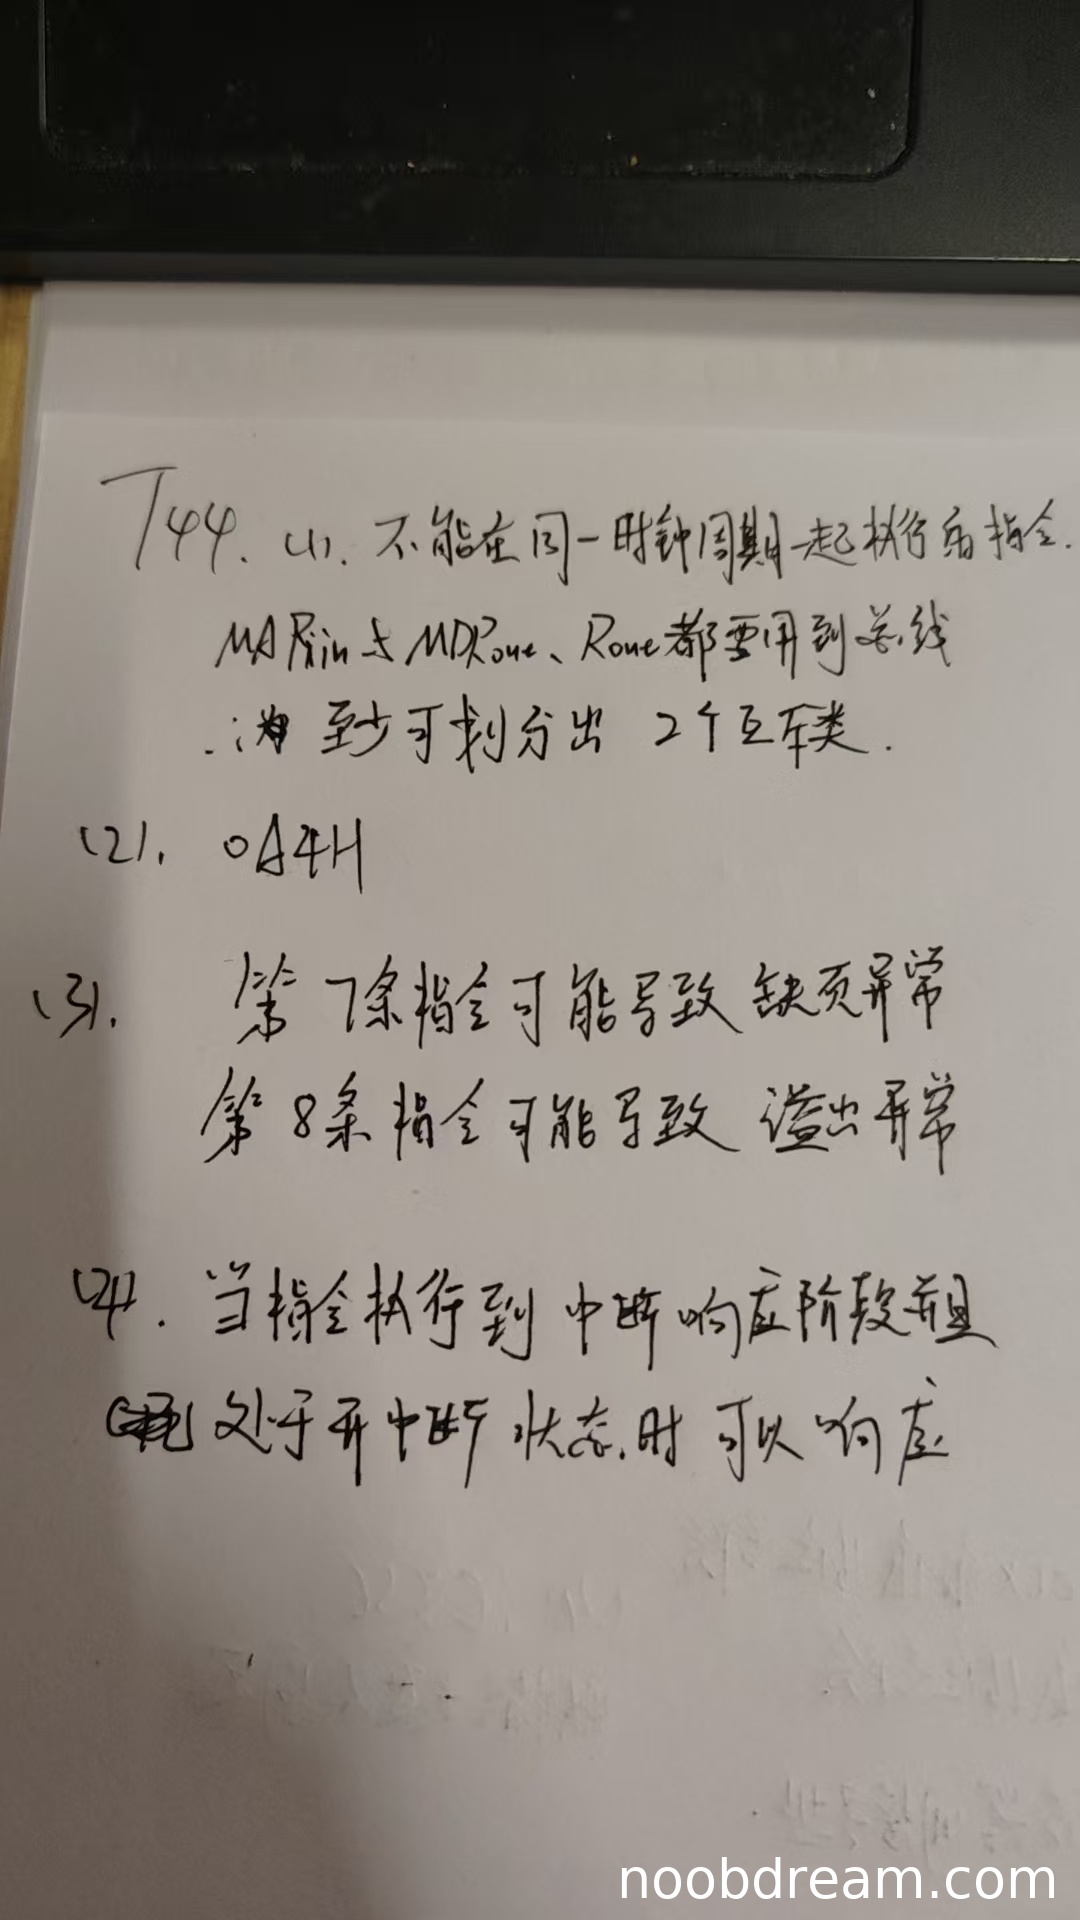 T44. (1). 不能在同一时钟周期一起执行的指令.
MARin与MDRout、Rout都要用到总线
∴ 至少可划分出 2个互斥类.
(2). 0A4H
(3). 第7条指令可能导致缺页异常
第8条指令可能导致 溢出异常
(4). 当指令执行到 中断响应阶段并且
处于开中断状态时 可以响应
noobdream.com